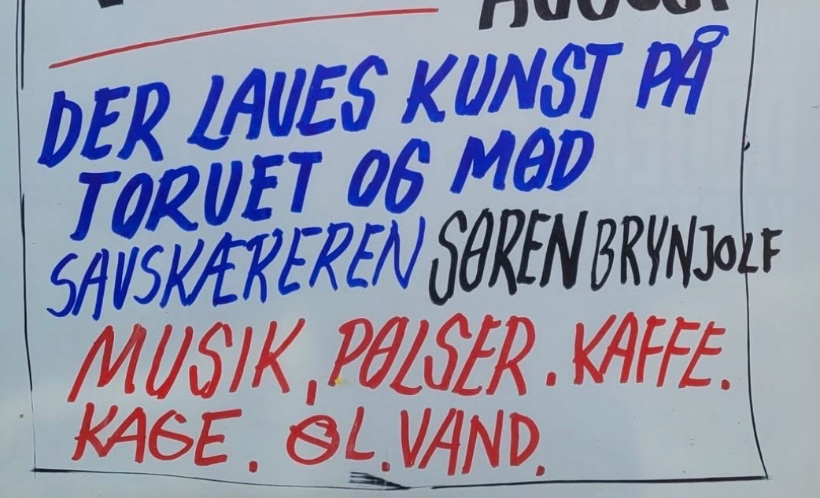 DER LAVES KUNST PÅ
TORVET OG MØD
SAVSKÆREREN SØREN BRYNJOLF
MUSIK, PØLSER. KAFFE.
KAGE. ØL. VAND.